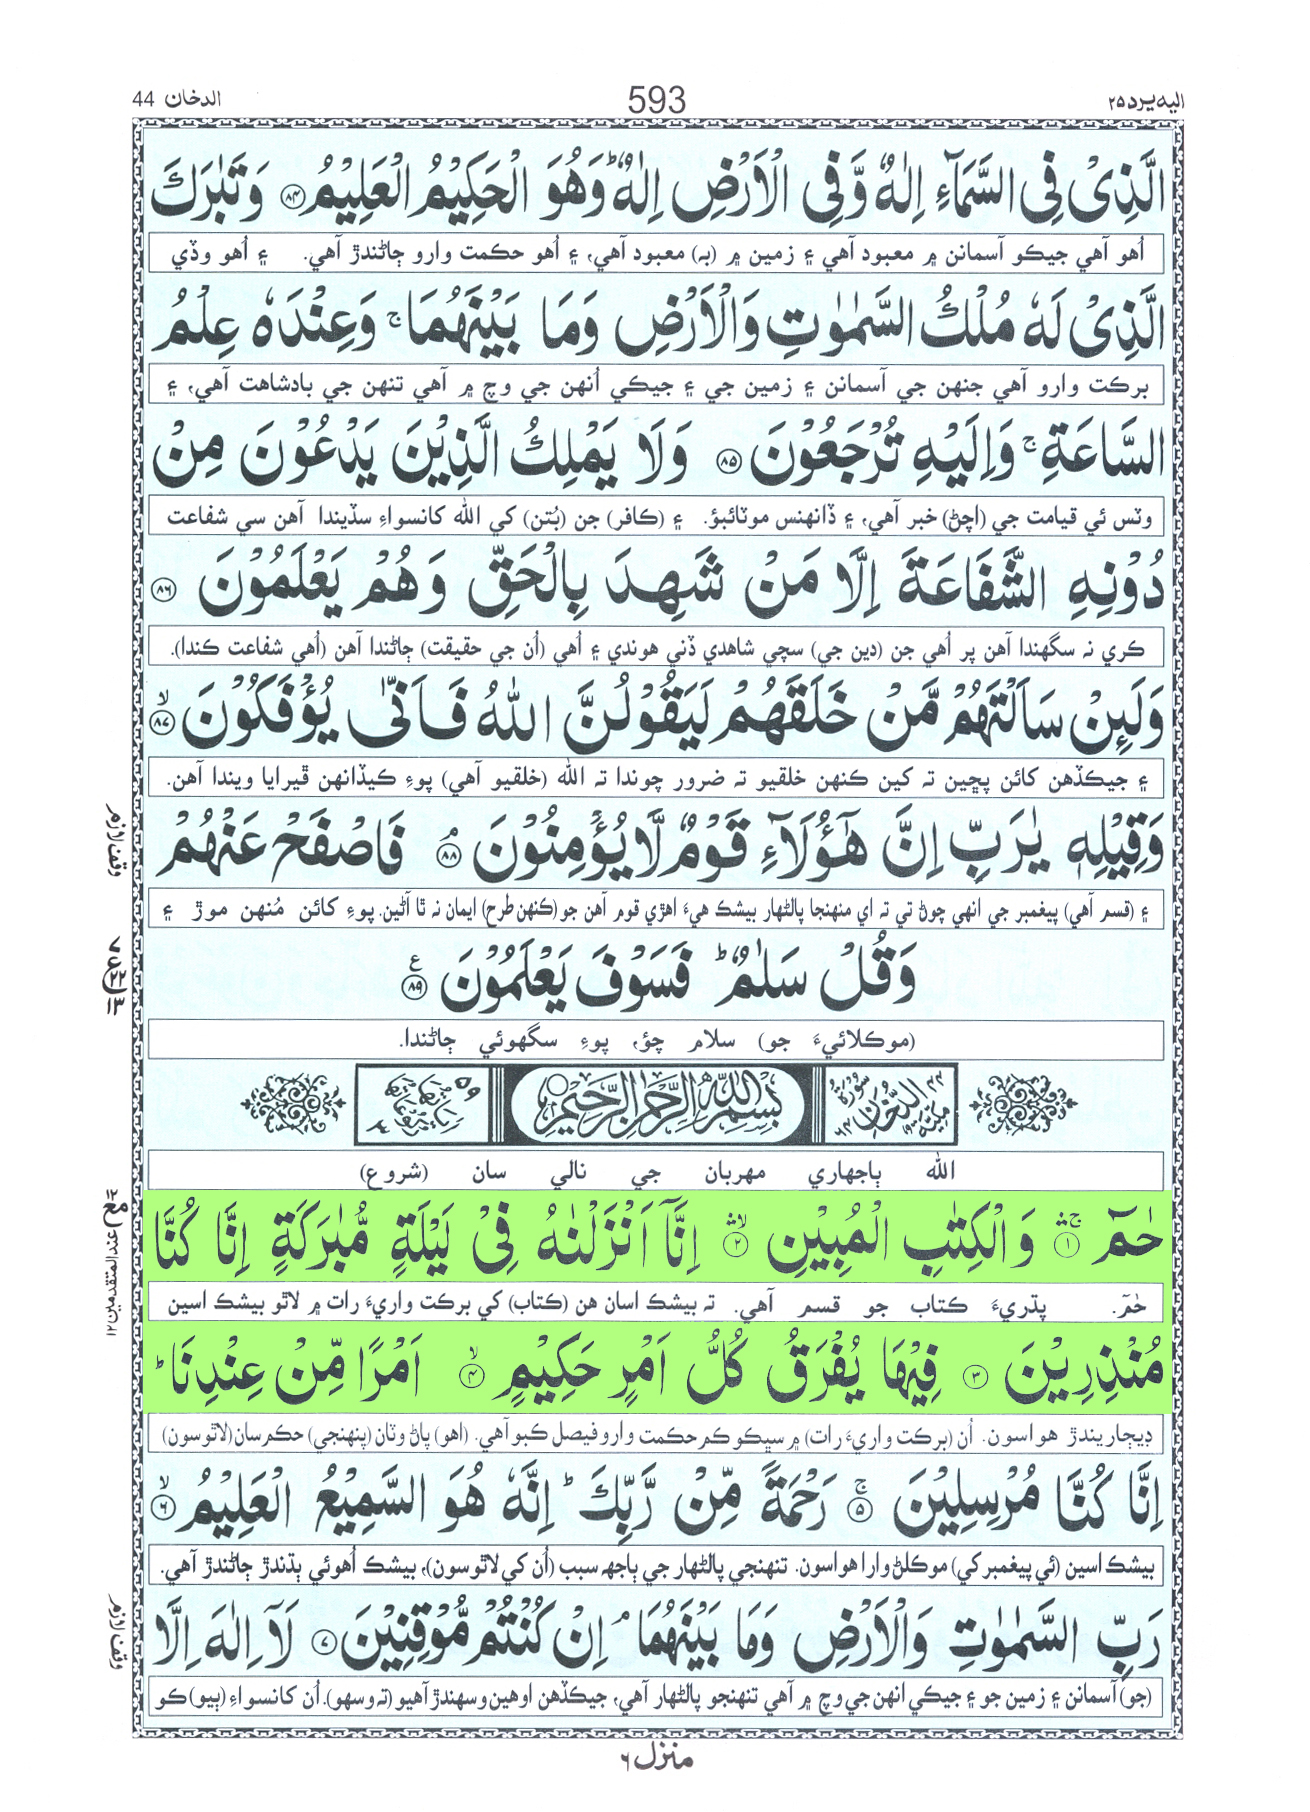 اليه يرد ٢٥ 593 الدخان 44
الَّذِىْ فِى السَّمَآءِ اِلٰهٌ وَّفِى الْاَرْضِ اِلٰهٌ ؕ وَهُوَ الْحَكِيْمُ الْعَلِيْمُ ﴿۸۴﴾ وَتَبٰرَكَ
اُهو آهي جيڪو آسمانن ۾ معبود آهي ۽ زمين ۾ (به) معبود آهي، ۽ اُهو حڪمت وارو ڄاڻندڙ آهي. ۽ اُهو وڏي
الَّذِىْ لَهٗ مُلْكُ السَّمٰوٰتِ وَالْاَرْضِ وَمَا بَيْنَهُمَا ۚ وَعِنْدَهٗ عِلْمُ
برڪت وارو آهي جنهن جي آسمانن ۽ زمين جي ۽ جيڪي اُنهن جي وچ ۾ آهي تنهن جي بادشاهت آهي، ۽
السَّاعَةِ ۚ وَاِلَيْهِ تُرْجَعُوْنَ ﴿۸۵﴾ وَلَا يَمْلِكُ الَّذِيْنَ يَدْعُوْنَ مِنْ
وٽس ئي قيامت جي (اچڻ) خبر آهي، ۽ ڏانهنس موٽائبؤ. ۽ (ڪافر) جن (بُتن) کي الله کانسواءِ سڏيندا آهن سي شفاعت
دُوْنِهِ الشَّفَاعَةَ اِلَّا مَنْ شَهِدَ بِالْحَقِّ وَهُمْ يَعْلَمُوْنَ ﴿۸۶﴾
ڪري نه سگهندا آهن پر اُهي جن (دين جي) سچي شاهدي ڏني هوندي ۽ اُهي (اُن جي حقيقت) ڄاڻندا آهن (اُهي شفاعت ڪندا).
وَلَئِنْ سَاَلْتَهُمْ مَّنْ خَلَقَهُمْ لَيَقُوْلُنَّ اللّٰهُ فَاَنّٰى يُؤْفَكُوْنَ ۙ﴿۸۷﴾
۽ جيڪڏهن کائن پڇين ته کين ڪنهن خلقيو ته ضرور چوندا ته الله (خلقيو آهي) پوءِ ڪيڏانهن ڦيرايا ويندا آهن.
وَقِيْلِهٖ يٰرَبِّ اِنَّ هٰٓؤُلَآءِ قَوْمٌ لَّا يُؤْمِنُوْنَ ۘ﴿۸۸﴾ فَاصْفَحْ عَنْهُمْ
وقف لازم
۽ (قسم آهي) پيغمبر جي انهي چوڻ تي ته اي منهنجا پالڻهار بيشڪ هيءَ اهڙي قوم آهن جو (ڪنهن طرح) ايمان نه ٿا آڻين. پوءِ کائن مُنهن موڙ ۽
وَقُلْ سَلٰمٌ ؕ فَسَوْفَ يَعْلَمُوْنَ ﴿۸۹﴾ ع
(موڪلائيءَ جو) سلام چؤ، پوءِ سگهوئي ڄاڻندا.
سُوْرَةُ الدُّخَانِ مَكِّيَّةٌ
بِسْمِ اللّٰهِ الرَّحْمٰنِ الرَّحِيْمِ
الله ٻاجهاري مهربان جي نالي سان (شروع)
حٰمٓ ۚۛ﴿۱﴾ وَالْكِتٰبِ الْمُبِيْنِ ۙۛ﴿۲﴾ اِنَّاۤ اَنْزَلْنٰهُ فِىْ لَيْلَةٍ مُّبٰرَكَةٍ اِنَّا كُنَّا
عند المتقدمين ١٢
حٰمٓ. پڌريءَ ڪتاب جو قسم آهي. ته بيشڪ اسان هن (ڪتاب) کي برڪت واريءَ رات ۾ لاٿو بيشڪ اسين
مُنْذِرِيْنَ ﴿۳﴾ فِيْهَا يُفْرَقُ كُلُّ اَمْرٍ حَكِيْمٍ ۙ﴿۴﴾ اَمْرًا مِّنْ عِنْدِنَا ؕ
ڊيڄاريندڙ هواسون. اُن (برڪت واريءَ رات) ۾ سڀڪو ڪم حڪمت وارو فيصل ڪبو آهي. (اهو) پاڻ وٽان (پنهنجي) حڪم سان (لاٿوسون)
اِنَّا كُنَّا مُرْسِلِيْنَ ۚ﴿۵﴾ رَحْمَةً مِّنْ رَّبِّكَ ؕ اِنَّهٗ هُوَ السَّمِيْعُ الْعَلِيْمُ ۙ﴿۶﴾
بيشڪ اسين (ئي پيغمبر کي) موڪلڻ وارا هواسون. تنهنجي پالڻهار جي ٻاجهه سبب (اُن کي لاٿوسون)، بيشڪ اُهوئي ٻڌندڙ ڄاڻندڙ آهي.
رَبِّ السَّمٰوٰتِ وَالْاَرْضِ وَمَا بَيْنَهُمَا ۘ اِنْ كُنْتُمْ مُّوْقِنِيْنَ ﴿۷﴾ لَاۤ اِلٰهَ اِلَّا
وقف لازم
(جو) آسمانن ۽ زمين جو ۽ جيڪي انهن جي وچ ۾ آهي تنهنجو پالڻهار آهي، جيڪڏهن اوهين وسهندڙ آهيو (ته وسهو). اُن کانسواءِ (ٻيو) ڪو
منزل ٦